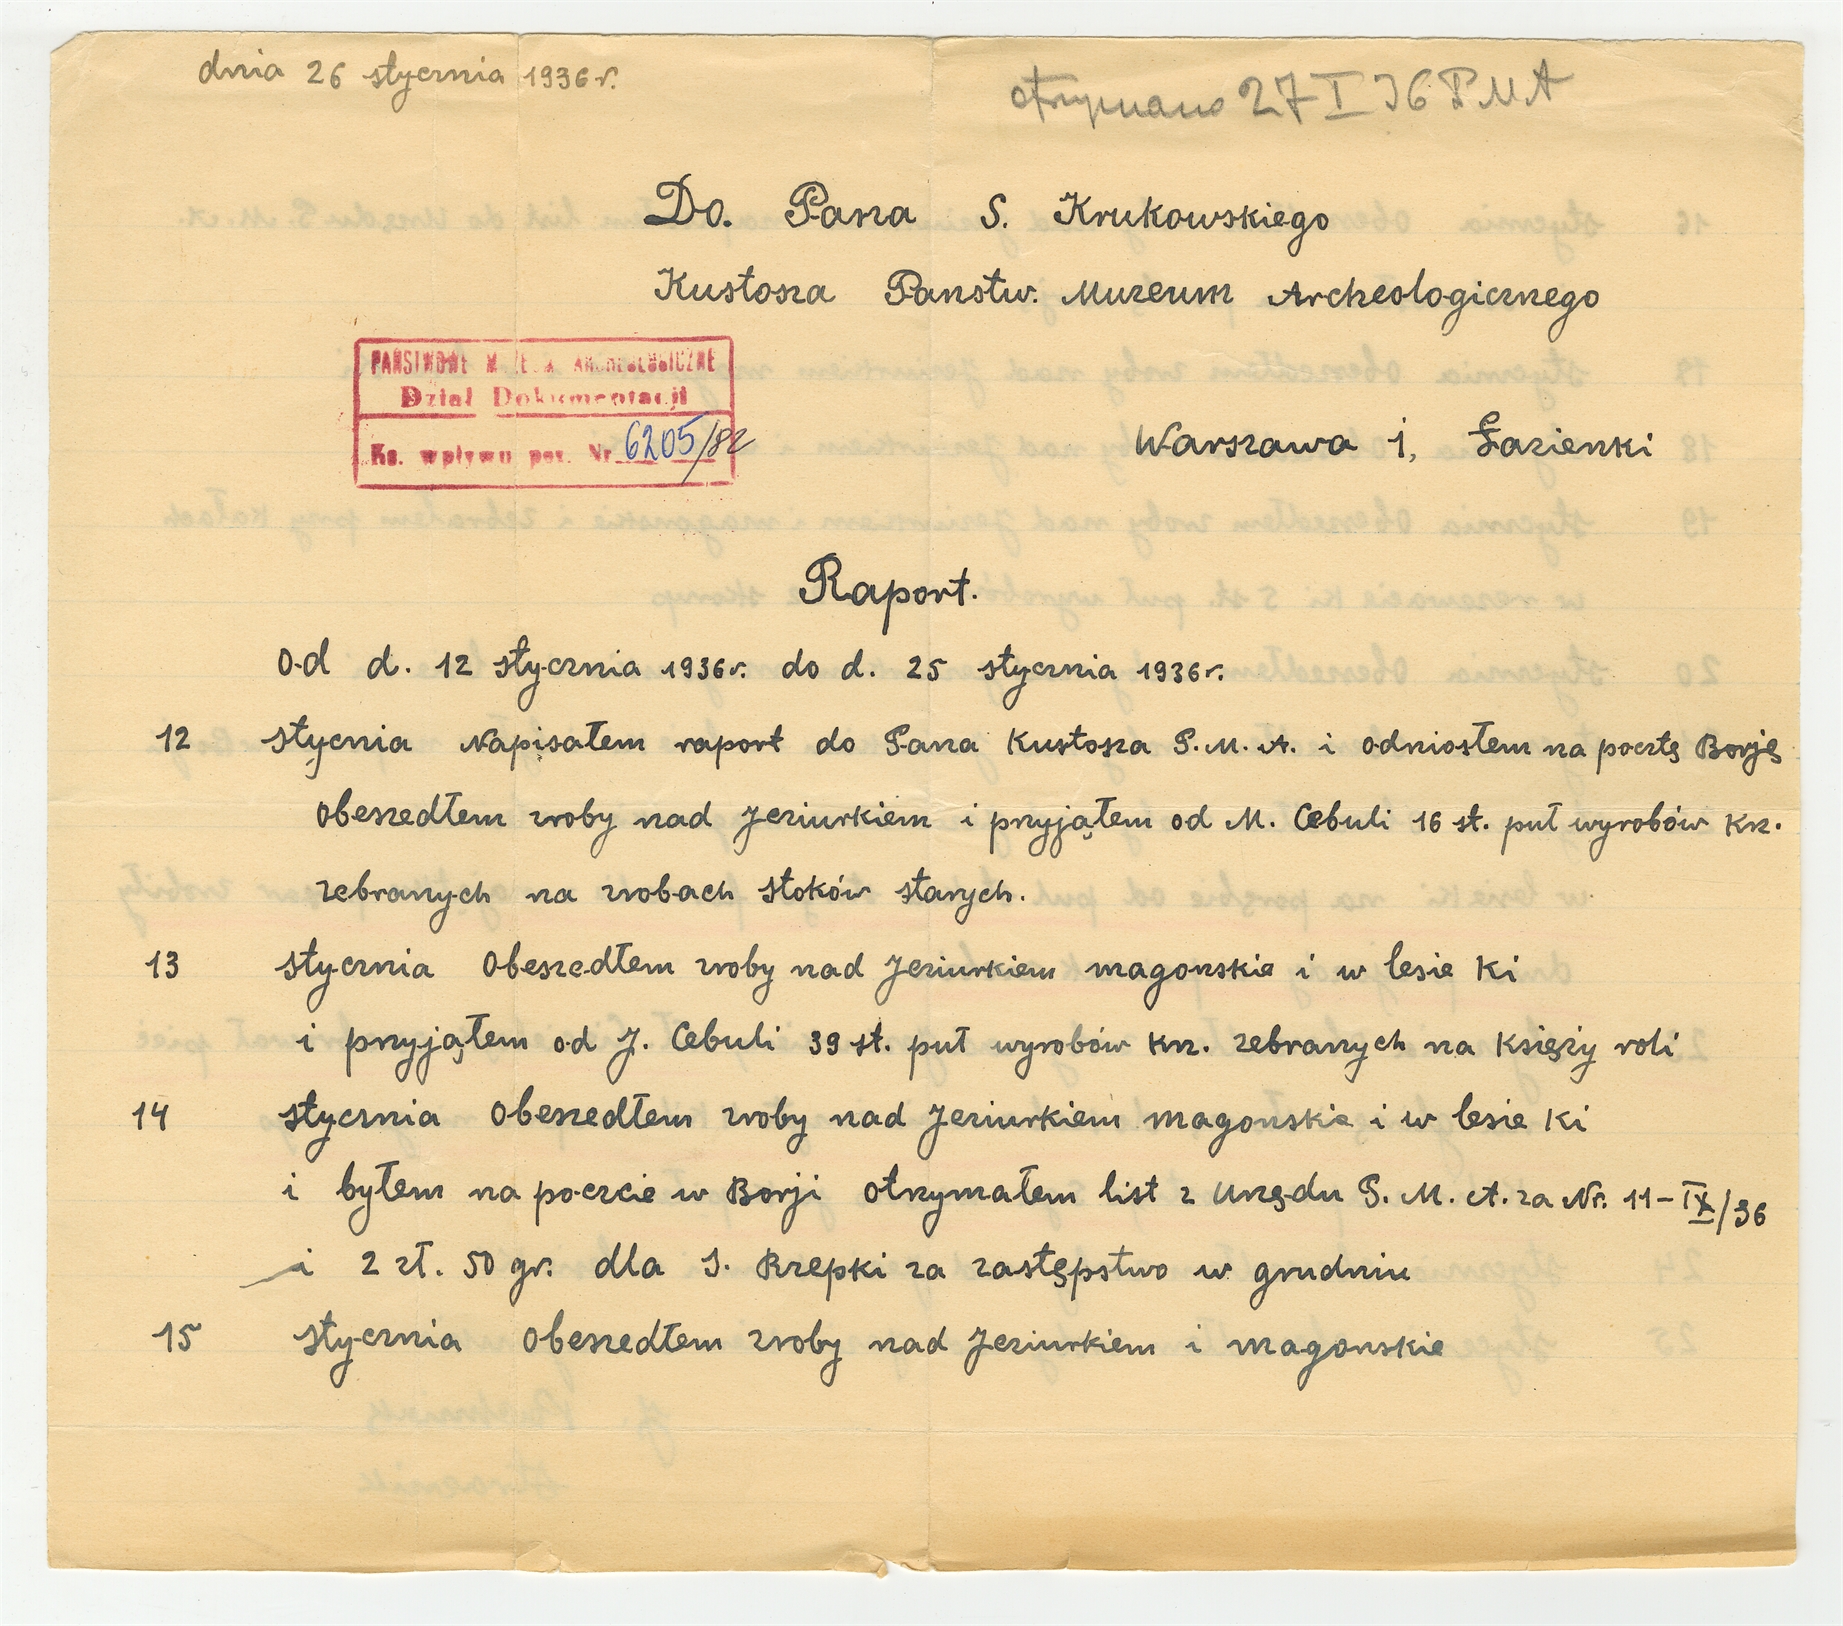 dnia 26 stycznia 1936 r.
otrzymano 27 I 36 PMA
Do. Pana S. Krukowskiego
Kustosza Panstw. Muzeum Archeologicznego
PAŃSTWOWE MUZEUM ARCHEOLOGICZNE
Dział Dokumentacji
Ks. wpływu poz. Nr 6205/82
Warszawa 1, Łazienki
Raport.
Od d. 12 stycznia 1936r. do d. 25 stycznia 1936r.
12 stycnia Napisałem raport do Pana Kustosza P. M. A. i odniosłem na pocztę Borję
Obeszedłem zroby nad Jeziurkiem i przyjąłem od M. Cebuli 16 st. puł wyrobów Krz.
zebranych na zrobach stoków starych.
13 stycznia Obeszedłem zroby nad Jeziurkiem magonskie i w lesie Ki
i przyjąłem od J. Cebuli 39 st. puł wyrobów Krz. zebranych na Księży roli
14 stycznia Obeszedłem zroby nad Jeziurkiem magonskie i w lesie Ki
i byłem na poczcie w Borji otrzymałem list z Urzędu P. M. A. za Nr. 11-IX/36
i 2 zł. 50 gr. dla S. Rzepki za zastępstwo w grudniu
15 stycznia Obeszedłem zroby nad Jeziurkiem i magonskie